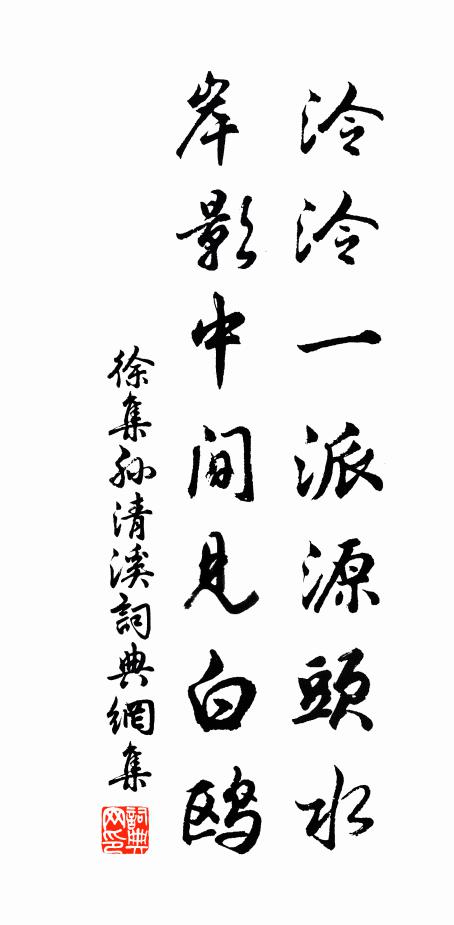 泠泠一派源頭水
岸影中間見白鷗
徐集孙清溪詞典網集
詞典
网印